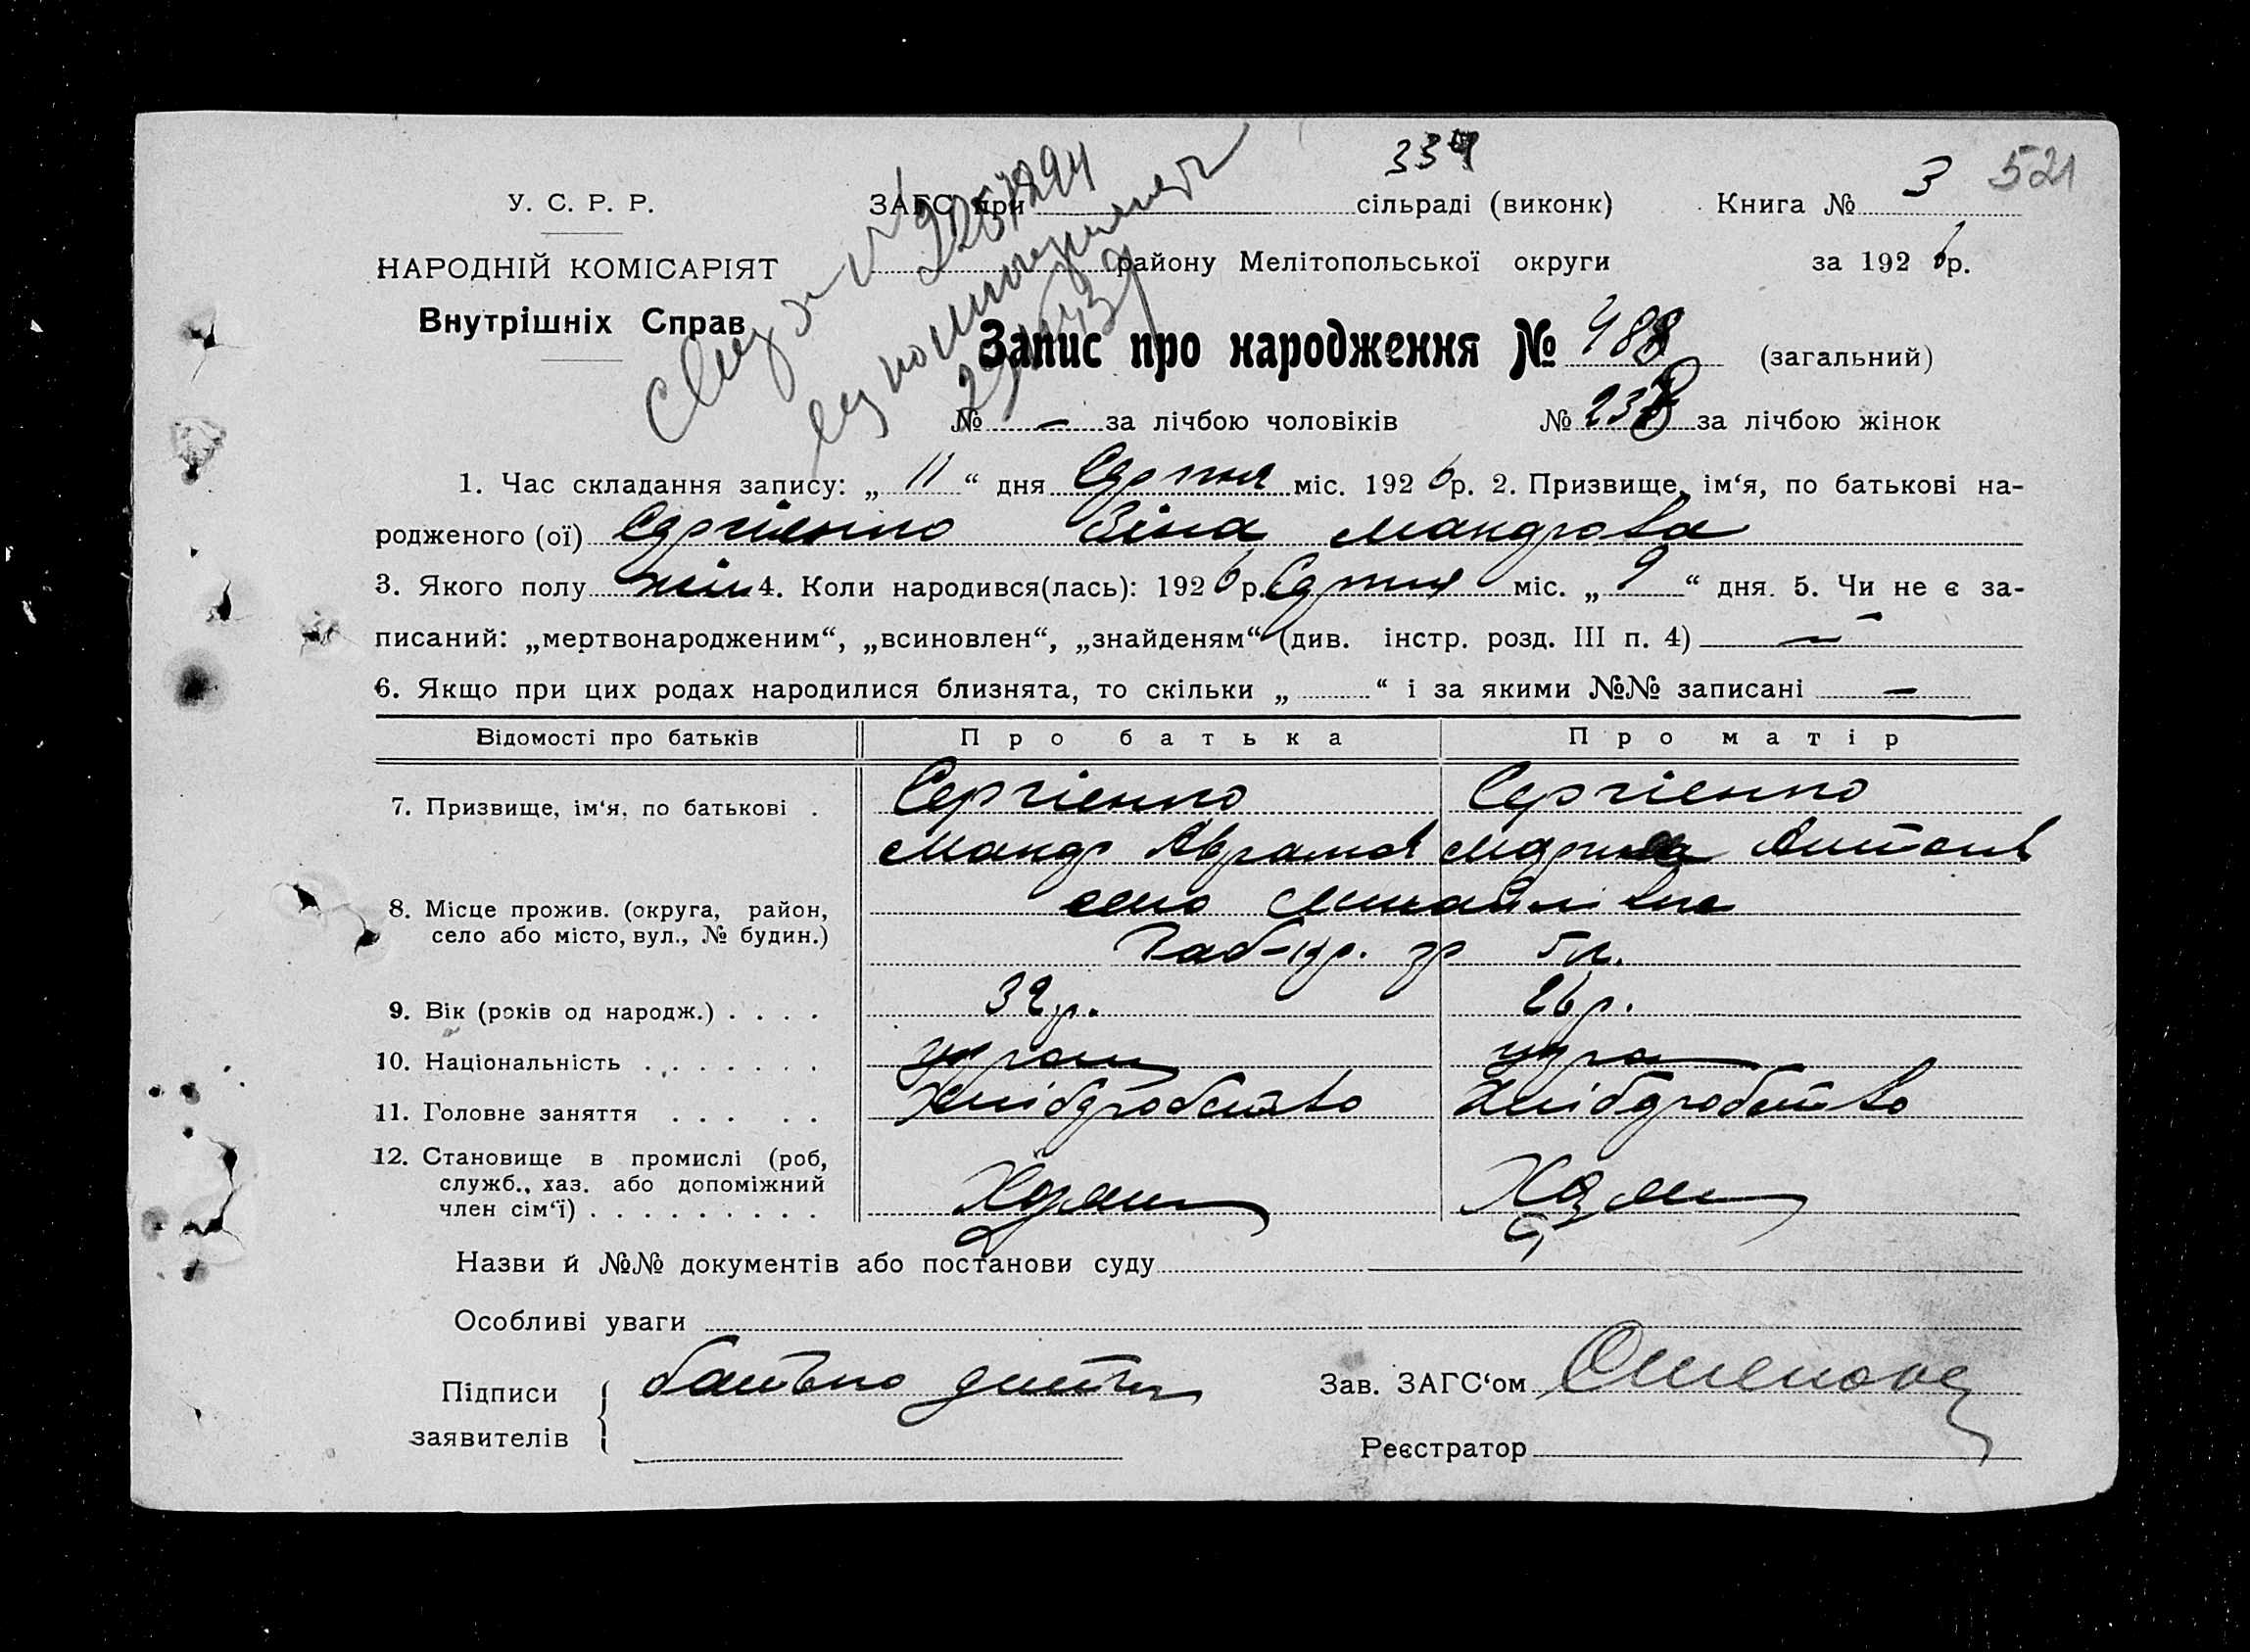 334
У. С. Р. Р. ЗАГС при сільраді (виконк) Книга № 3 521
НАРОДНІЙ КОМІСАРІЯТ району Мелітопольської округи за 1926р.
Внутрішніх Справ
Запис про народження № 488 (загальний)
№ — за лічбою чоловіків № 238 за лічбою жінок
1. Час складання запису: „ 11 “ дня Серпня міс. 1926р. 2. Призвище, ім‘я, по батькові на-
родженого (ої) Сергіенко Зіна Макарова
3. Якого полу жін 4. Коли народився(лась): 1926р. Серпня міс. „ 9 “ дня. 5. Чи не є за-
писаний: „мертвонародженим“, „всиновлен“, „знайденям“ (див. інстр. розд. III п. 4) —
6. Якщо при цих родах народилися близнята, то скільки „ “ і за якими №№ записані —
Відомості про батьків Про батька Про матір
7. Призвище, ім‘я, по батькові . Сергіенко Сергіенко
Макар Аврамов Марина Антонів
8. Місце прожив. (округа, район, село Михайлівка
село або місто, вул., № будин.)
9. Вік (років од народж.) . . . . 32 р. 26 р.
10. Національність . . . . . . . укра
11. Головне заняття . . . . . Хліборобство Хліборобство
12. Становище в промислі (роб,
служб., хаз. або допоміжний
член сім‘ї) . . . . . . . . .
Назви й №№ документів або постанови суду
Особливі уваги
Підписи батько дитини Зав. ЗАГС‘ом
заявителів Реєстратор